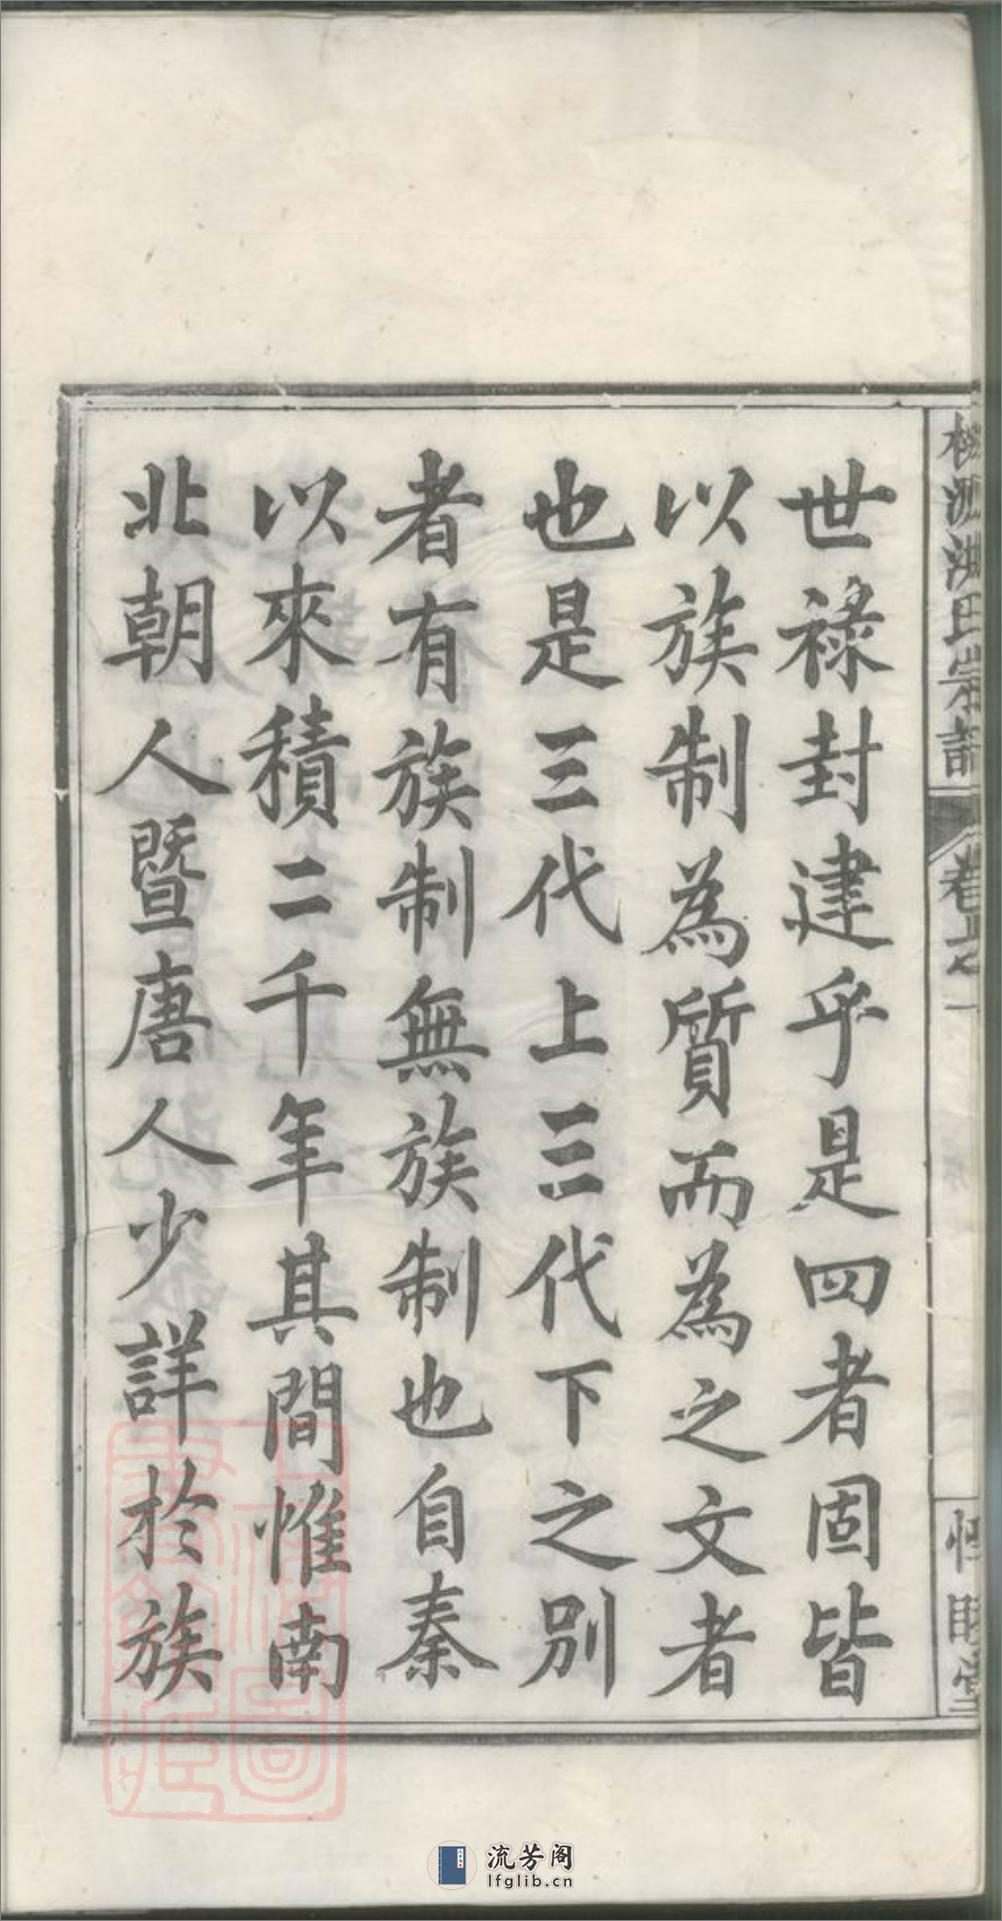 世祿封建乎是四者固皆
以族制為質而為之文者
也是三代上三代下之別
者有族制無族制也自秦
以來積二千年其間惟南
北朝人暨唐人少詳於族
桃源洪氏宗譜
卷之一
惇睦堂
流芳阁
lfglib.cn